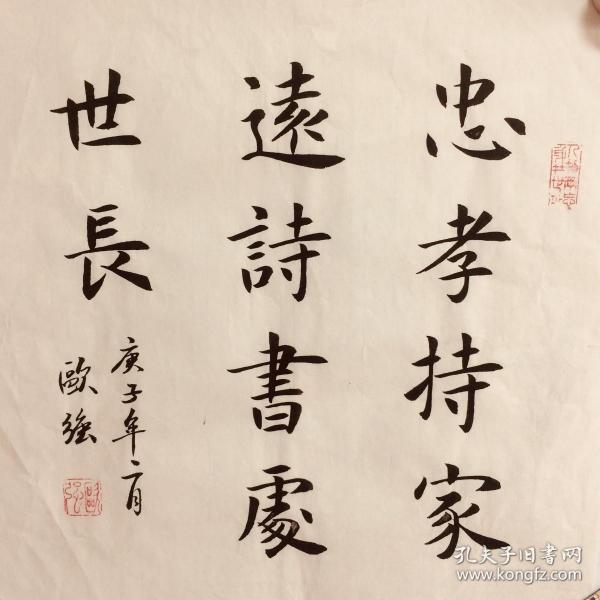 忠孝持家
遠詩書處
世長
庚子年二月
歐強
孔夫子旧书网
www.kongfz.com